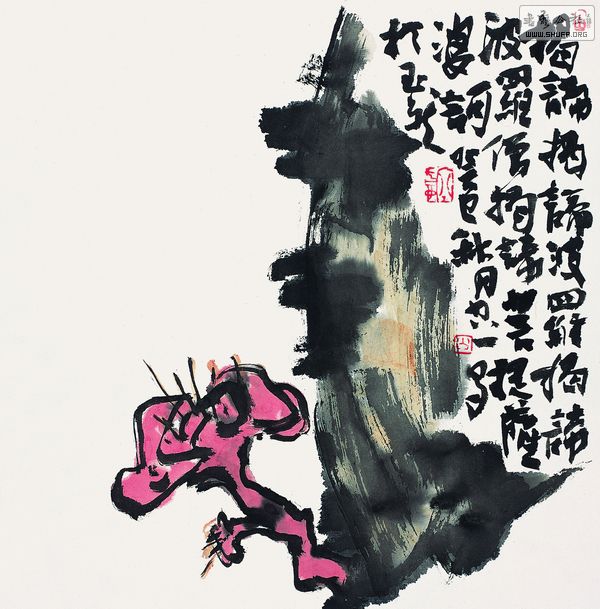 揭諦揭諦波羅揭諦
波羅僧揭諦菩提薩
婆訶 癸巳秋月 一写
於玉龙
WWW.SHUFA.ORG